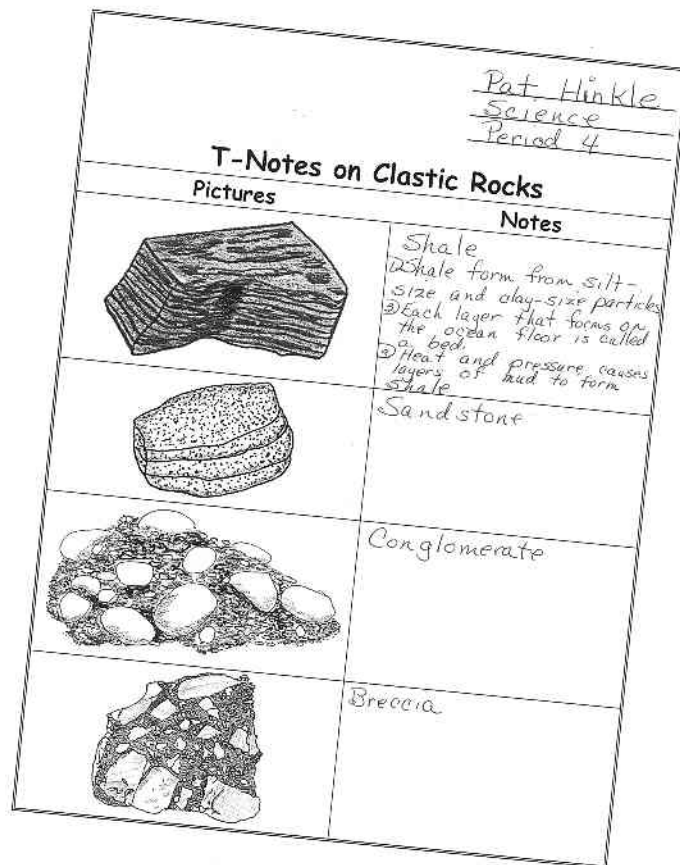 Pat Hinkle
Science
Period 4
T-Notes on Clastic Rocks
Pictures
Notes
Shale
① Shale form from silt-
size and clay-size particles
② Each layer that forms on
the ocean floor is called
a bed.
③ Heat and pressure causes
layers of mud to form
shale
Sandstone
Conglomerate
Breccia